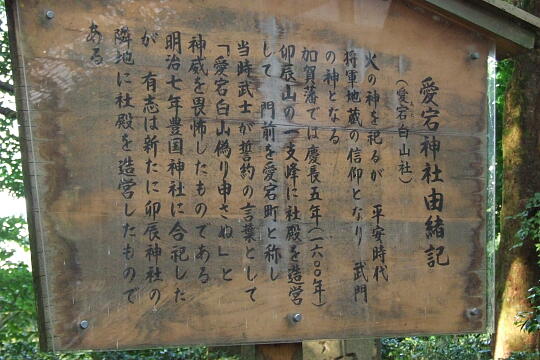 愛宕神社由緒記
（愛宕白山社）
火の神を祀るが　平安時代
将軍地蔵の信仰となり　武門
の神となる
加賀藩では慶長五年（一六〇〇年）
卯辰山の一支峰に社殿を造営
して　門前を愛宕町と称し
当時武士が誓約の言葉として
「愛宕白山偽り申さぬ」と
神威を畏怖したものである
明治七年豊国神社に合祀した
が　有志は新たに卯辰神社の
隣地に社殿を造営したもので
ある